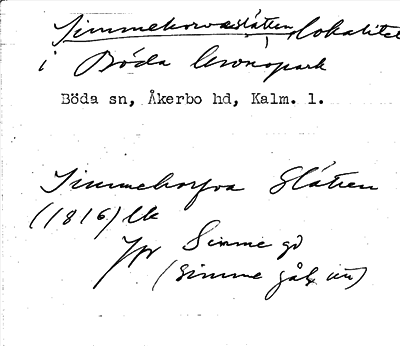 Simmekorvaslåtten, lokalitet
i Böda kronopark
Böda sn, Åkerbo hd, Kalm. l.
Simmekorfva Slåtten
(1816) lk
Jfr Simme gd
(Simme